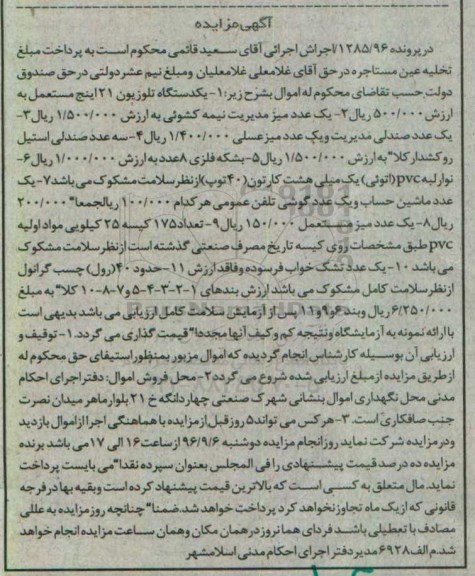 آگهی مزایده
در پرونده ۱۲۸۵/۹۶/اجراش اجرائی آقای سعید قائمی محکوم است به پرداخت مبلغ
تخلیه عین مستاجره در حق آقای غلامعلی غلامعلیان و مبلغ نیم عشر دولتی در حق صندوق
دولت حسب تقاضای محکوم له اموال بشرح زیر: ۱- یکدستگاه تلوزیون ۲۱ اینچ مستعمل به
ارزش ۵۰۰/۰۰۰ ریال ۲- یک عدد میز مدیریت نیمه کشوئی به ارزش ۱/۵۰۰/۰۰۰ ریال ۳-
یک عدد صندلی مدیریت و یک عدد میز عسلی ۱/۴۰۰/۰۰۰ ریال ۴- سه عدد صندلی استیل
روکشدار کلا" به ارزش ۱/۵۰۰/۰۰۰ ریال ۵- بشکه فلزی ۸ عدد به ارزش ۱/۰۰۰/۰۰۰ ریال ۶-
نوار لبه pvc (اتوئی) یک میلی هشت کارتون (۴۰ توپ) از نظر سلامت مشکوک می باشد ۷- یک
عدد ماشین حساب و یک عدد گوشی تلفن عمومی هر کدام ۱۰۰/۰۰۰ ریال جمعا" ۲۰۰/۰۰۰
ریال ۸- یک عدد میز مستعمل ۱۵۰/۰۰۰ ریال ۹- تعداد ۱۷۵ کیسه ۲۵ کیلویی مواد اولیه
pvc طبق مشخصات روی کیسه تاریخ مصرف صنعتی گذشته است از نظر سلامت مشکوک
می باشد ۱۰- یک عدد تشک خواب فرسوده و فاقد ارزش ۱۱- حدود ۴۰ (رول) چسب گرانول
از نظر سلامت کامل مشکوک می باشد ارزش بندهای ۱-۲-۳-۴-۵ و ۷-۸-۱۰ کلا" به مبلغ
۶/۲۵۰/۰۰۰ ریال و بند ۶ و ۹ و ۱۱ پس از آزمایش سلامت کامل ارزیابی می باشد بدیهی است
با ارائه نمونه به آزمایشگاه و نتیجه کم و کیف آنها مجددا" قیمت گذاری می گردد. ۱- توقیف و
ارزیابی آن بوسیله کارشناس انجام گردیده که اموال مزبور بمنظور استیفای حق محکوم له
از طریق مزایده از مبلغ ارزیابی شده شروع می گردد ۲- محل فروش اموال: دفتر اجرای احکام
مدنی محل نگهداری اموال بنشانی شهرک صنعتی چهاردانگه خ ۲۱ بلوار ماهر میدان نصرت
جنب صافکاری است. ۳- هر کس می تواند ۵ روز قبل از مزایده با هماهنگی اجرا از اموال بازدید
و در مزایده شرکت نماید روز انجام مزایده دوشنبه ۹۶/۹/۶ از ساعت ۱۶ الی ۱۷ می باشد برنده
مزایده ده درصد قیمت پیشنهادی را فی المجلس بعنوان سپرده نقدا" می بایست پرداخت
نماید. مال متعلق به کسی است که بالاترین قیمت پیشنهاد کرده است و بقیه بها در فرجه
قانونی که از یک ماه تجاوز نخواهد کرد پرداخت خواهد شد. ضمنا" چنانچه روز مزایده به عللی
مصادف با تعطیلی باشد فردای همانروز در همان مکان و همان ساعت مزایده انجام خواهد
شد. م الف ۶۹۲۸ مدیر دفتر اجرای احکام مدنی اسلامشهر